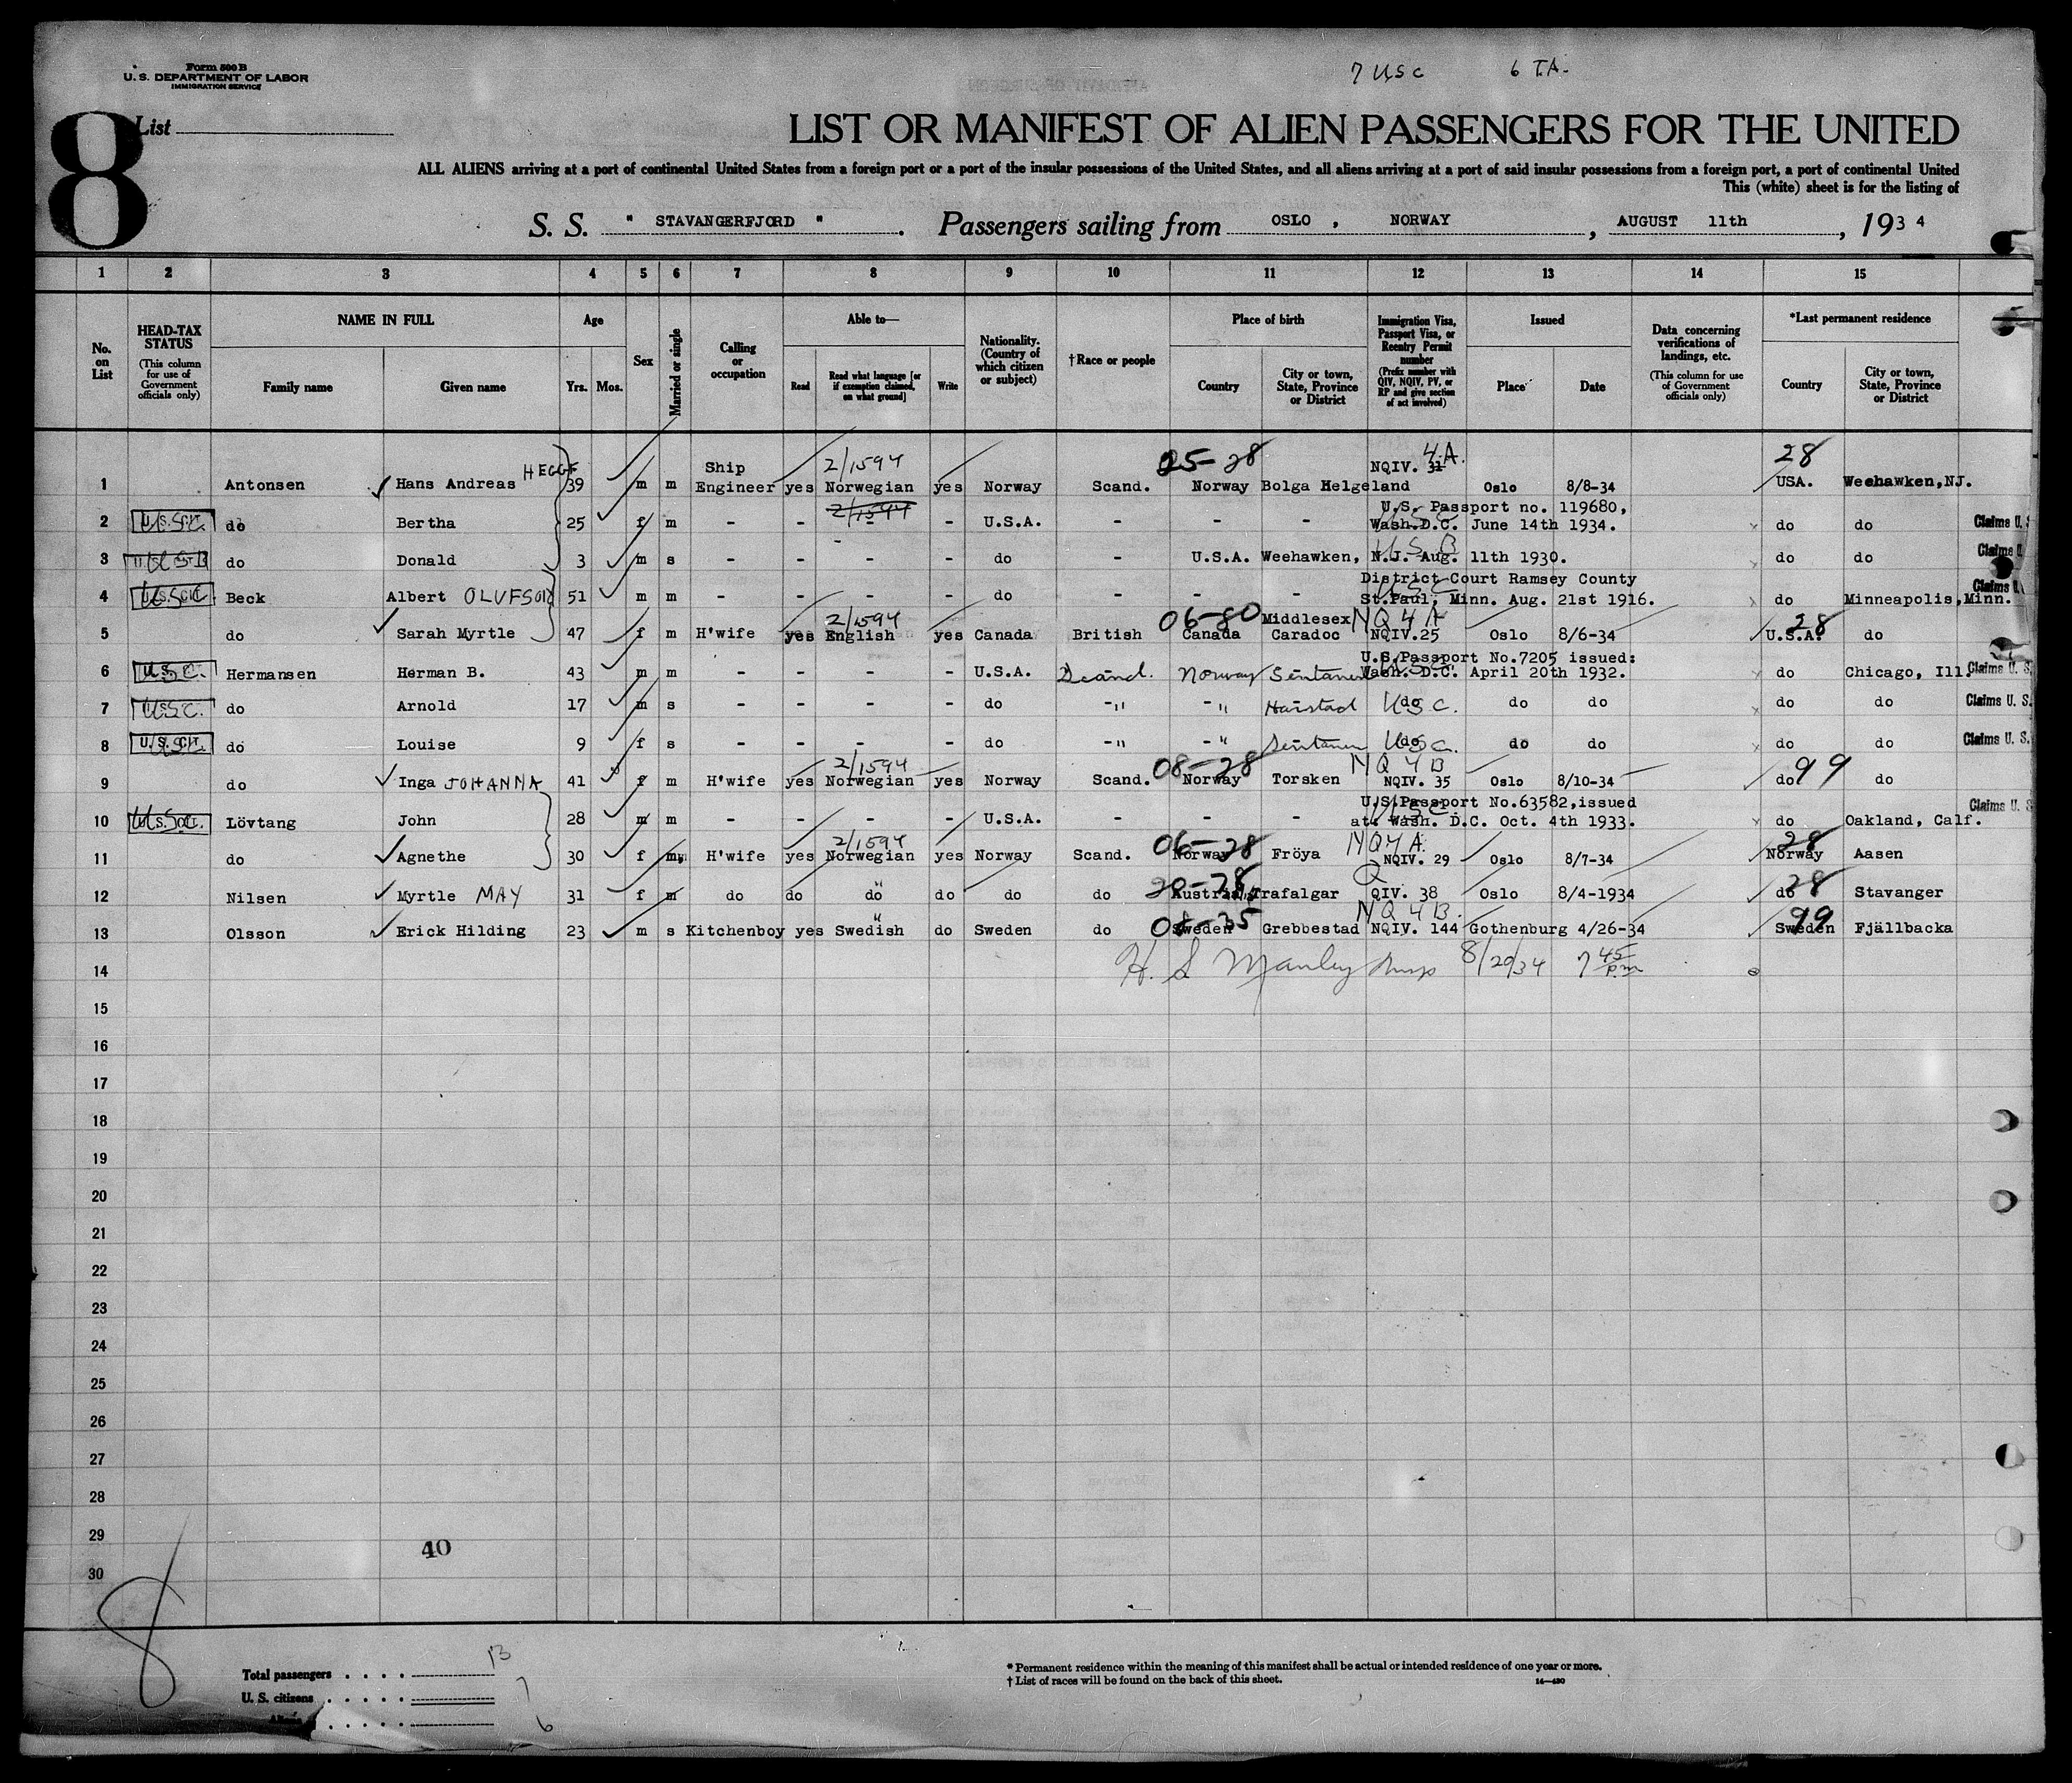 7 USC 6 T.A.
Form 500 B
U. S. DEPARTMENT OF LABOR
IMMIGRATION SERVICE
8
List
LIST OR MANIFEST OF ALIEN PASSENGERS FOR THE UNITED
ALL ALIENS arriving at a port of continental United States from a foreign port or a port of the insular possessions of the United States, and all aliens arriving at a port of said insular possessions from a foreign port, a port of continental United
This (white) sheet is for the listing of
S. S. " STAVANGERFJORD ". Passengers sailing from OSLO , NORWAY , AUGUST 11th , 193 4
1 2 3 4 5 6 7 8 9 10 11 12 13 14 15
No. on List
HEAD-TAX STATUS
(This column for use of Government officials only)
NAME IN FULL
Family name Given name
Age
Yrs. Mos.
Sex
Married or single
Calling or occupation
Able to—
Read Read what language [or if exemption claimed, on what ground] Write
Nationality. (Country of which citizen or subject)
†Race or people
Place of birth
Country City or town, State, Province or District
Immigration Visa, Passport Visa, or Reentry Permit number
(Prefix number with QIV, NQIV, PV, or RP and give section of act involved)
Issued
Place Date
Data concerning verifications of landings, etc.
(This column for use of Government officials only)
*Last permanent residence
Country City or town, State, Province or District
HEGGE 2/1594 25-28 4A. 28
1 Antonsen Hans Andreas 39 m m Ship Engineer yes Norwegian yes Norway Scand. Norway Bolga Helgeland NQIV. 31 Oslo 8/8-34 USA. Weehawken,NJ.
2/1594
2 U.S.C. do Bertha 25 f m - - - U.S.A. - - - U.S. Passport no. 119680, Wash.D.C. June 14th 1934. do do Claims U. S
3 do Donald 3 m s - - - do - U.S.A. Weehawken, N.J. Aug. 11th 1930. do do Claims U
4 U.S.C. Beck Albert OLUFSON 51 m m - - - do - - - District Court Ramsey County St.Paul, Minn. Aug. 21st 1916. do Minneapolis,Minn. Claims U.
2/1594 06-80 NQ 4 A 28
5 do Sarah Myrtle 47 f m H'wife yes English yes Canada British Canada Middlesex Caradoc NQIV.25 Oslo 8/6-34 U.S.A. do
6 U.S.C. Hermansen Herman B. 43 m m - - - U.S.A. Scand. Norway U.S.Passport No.7205 issued: Wash. D.C. April 20th 1932. do Chicago, Ill. Claims U. S.
7 U.S.C. do Arnold 17 m s - - - do -"- -"- Harstad do USC. do do do do Claims U. S.
8 U.S.C. do Louise 9 f s - - - do -"- -"- do USC. do do do do Claims U. S.
2/1594 08-28 NQ 4 B 99
9 do Inga JOHANNA 41 f m H'wife yes Norwegian yes Norway Scand. Norway Torsken NQIV. 35 Oslo 8/10-34 do do
10 U.S.C. Lövtang John 28 m m - - - U.S.A. - - - U.S.Passport No.63582,issued at Wash. D.C. Oct. 4th 1933. do Oakland, Calf. Claims U. S
2/1594 06-28 NQ4A. 28
11 do Agnethe 30 f m H'wife yes Norwegian yes Norway Scand. Norway Fröya NQIV. 29 Oslo 8/7-34 Norway Aasen
20-28 Q 28
12 Nilsen Myrtle MAY 31 f m do do do do do do Trafalgar QIV. 38 Oslo 8/4-1934 do Stavanger
08-35 NQ 4 B. 99
13 Olsson Erick Hilding 23 m s Kitchenboy yes Swedish do Sweden do Sweden Grebbestad NQIV. 144 Gothenburg 4/26-34 Sweden Fjällbacka
14 H. S Manley Insp 8/20/34 7 45 p.m
15
16
17
18
19
20
21
22
23
24
25
26
27
28
29
30
40
8
Total passengers 13
U. S. citizens 7
Aliens 6
* Permanent residence within the meaning of this manifest shall be actual or intended residence of one year or more.
† List of races will be found on the back of this sheet.
14—430